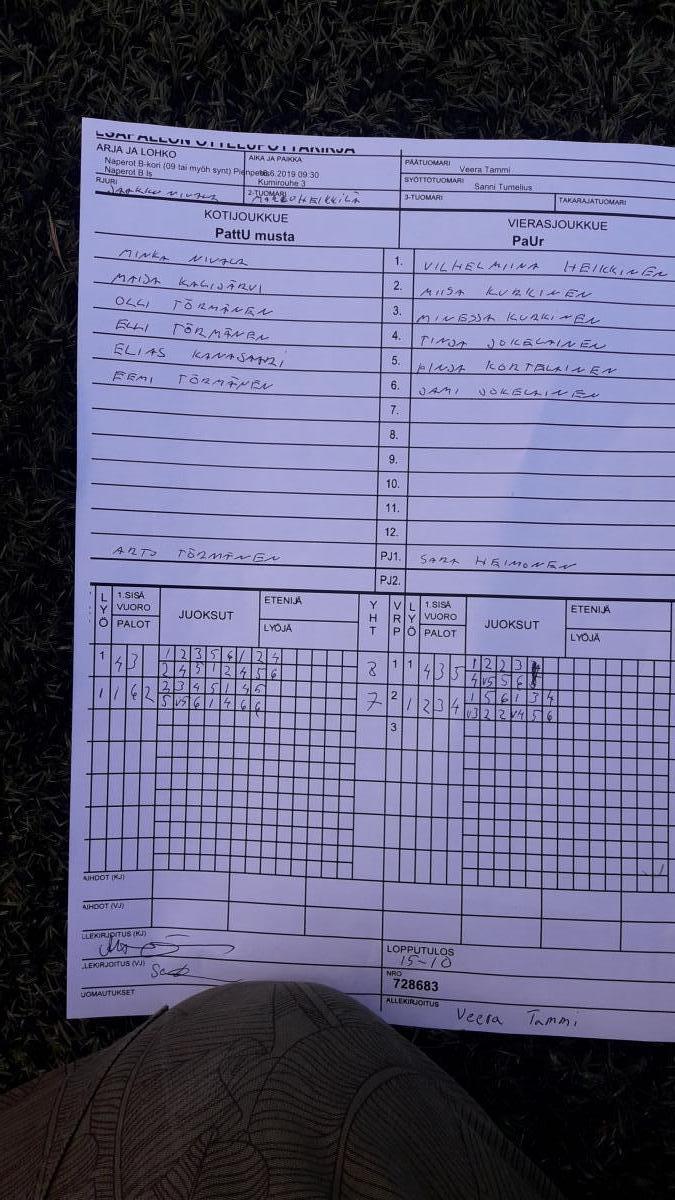 ESÄPALLON OTTELUPÖYTÄKIRJA
ARJA JA LOHKO
Naperot B-kori (09 tai myöh synt) Pienpesis
Naperot B ls
AIKA JA PAIKKA
6.2019 09:30
Kumirouhe 3
PÄÄTUOMARI
Veera Tammi
SYÖTTÖTUOMARI
Sanni Tumelius
RJURI
JAAKKO NIVALA
2-TUOMARI
MARKO HEIKKILÄ
3-TUOMARI
TAKARAJATUOMARI
KOTIJOUKKUE
PattU musta
VIERASJOUKKUE
PaUr
MINKA NIVALA 1. VILHELMIINA HEIKKINEN
MAIJA KALIJÄRVI 2. MIISA KURKINEN
OLLI TÖRMÄNEN 3. MINESSA KURKINEN
ELLI TÖRMÄNEN 4. TINJA JOKELAINEN
ELIAS KANASAARI 5. PINJA KORTELAINEN
EEMI TÖRMÄNEN 6. JAMI JOKELAINEN
7.
8.
9.
10.
11.
12.
ARTO TÖRMÄNEN PJ1. SARA HEIMONEN
PJ2.
LYÖ 1.SISÄ VUORO PALOT JUOKSUT ETENIJÄ LYÖJÄ YHT VRP LYÖ 1.SISÄ VUORO PALOT JUOKSUT ETENIJÄ LYÖJÄ
1 4 3 1 2 3 5 6 1 2 4 8 1 1 4 3 5 1 2 2 3
2 4 5 1 2 4 5 6 4 v5 5 6
1 1 6 2 2 3 4 5 1 4 5 7 2 1 2 3 4 1 5 6 1 3 4
5 v5 6 1 4 6 6 v3 2 2 v4 5 6
3
AIHDOT (KJ)
AIHDOT (VJ)
LLEKIRJOITUS (KJ)
LLEKIRJOITUS (VJ)
UOMAUTUKSET
LOPPUTULOS
15-10
NRO
728683
ALLEKIRJOITUS
Veera Tammi